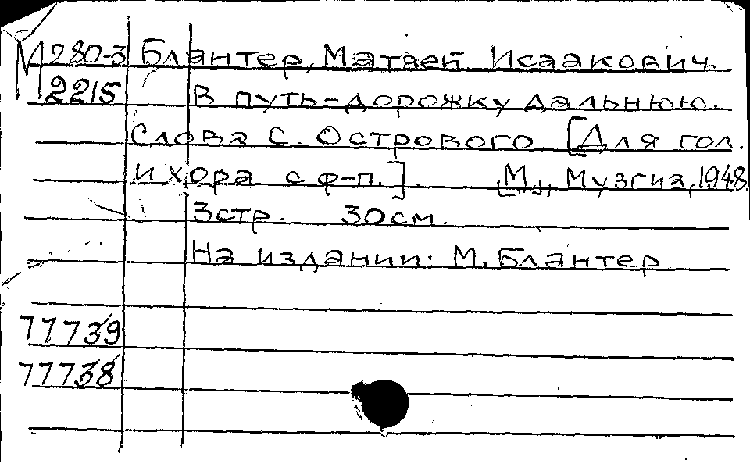 М280-3 Блантер, Матвей Исаакович.
2215 В путь-дорожку дальнюю.
Слова С. Острового [Для гол.
и хора с ф-п.]. [М.], Музгиз, 1948.
3стр. 30см.
На издании: М. Блантер
77739
77738